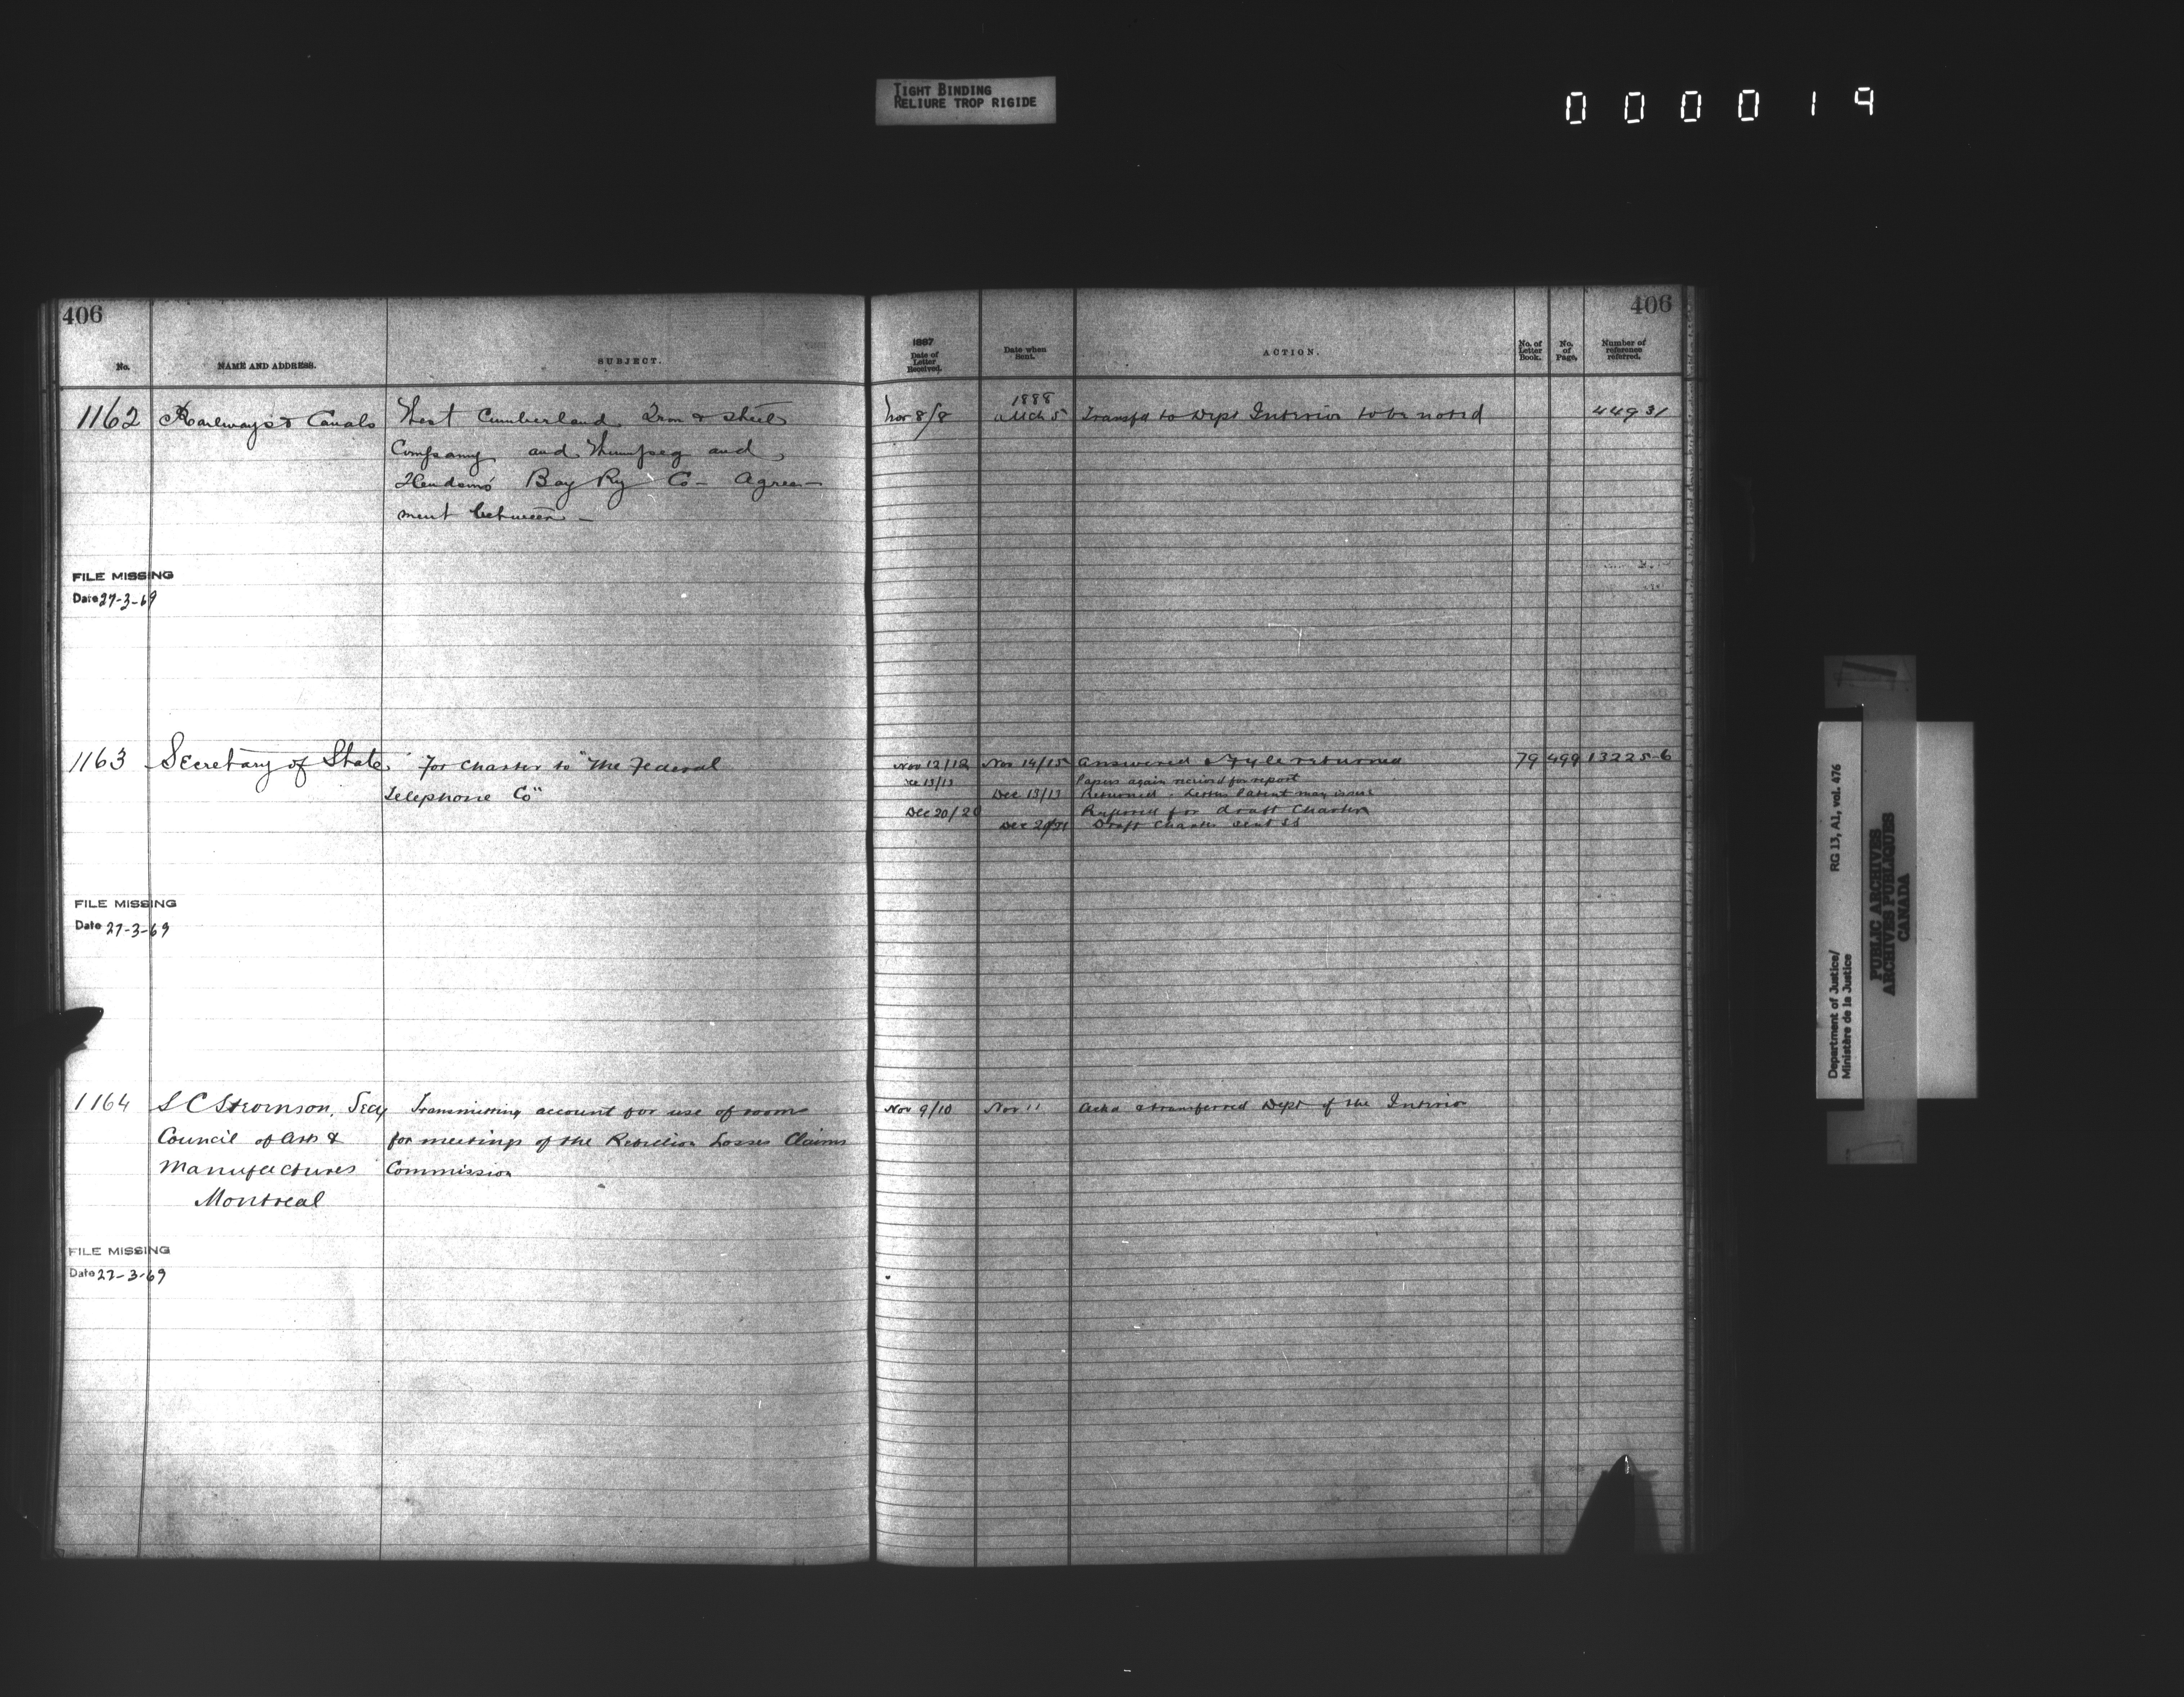 TIGHT BINDING
RELIURE TROP RIGIDE
000019
406
406
No.
NAME AND ADDRESS.
SUBJECT.
1887
Date of Letter Received.
Date when Sent.
ACTION.
No. of Letter Book.
No. of Page.
Number of reference referred.
1162 Railways & Canals West Cumberland Iron & Steel Nov 8/8 1888 Mch 5 Transfd to Dept Interior to be noted 44931
Company and Winnipeg and
Hudsons Bay Ry Co - Agree-
ment between -
FILE MISSING
Date 27-3-69
1163 Secretary of State For charter to "The Federal Nov 12/12 Nov 14/15 Answered & Fyle returned 79 499 13225-6
Telephone Co" Dec 13/13 Papers again received for report
Dec 13/13 Returned. Letters Patent may issue
Dec 20/20 Referred for draft Charter
Draft Charter sent SS
FILE MISSING
Date 27-3-69
1164 S C Stevenson, Secy Transmitting account for use of rooms Nov 9/10 Nov 11 Ackd & transferred Dept of the Interior
Council of Arts & for meetings of the Rebellion Losses Claims
Manufactures Commission
Montreal
FILE MISSING
Date 27-3-69
Department of Justice/ RG 13, A1, vol. 476
Ministère de la Justice
PUBLIC ARCHIVES
ARCHIVES PUBLIQUES
CANADA